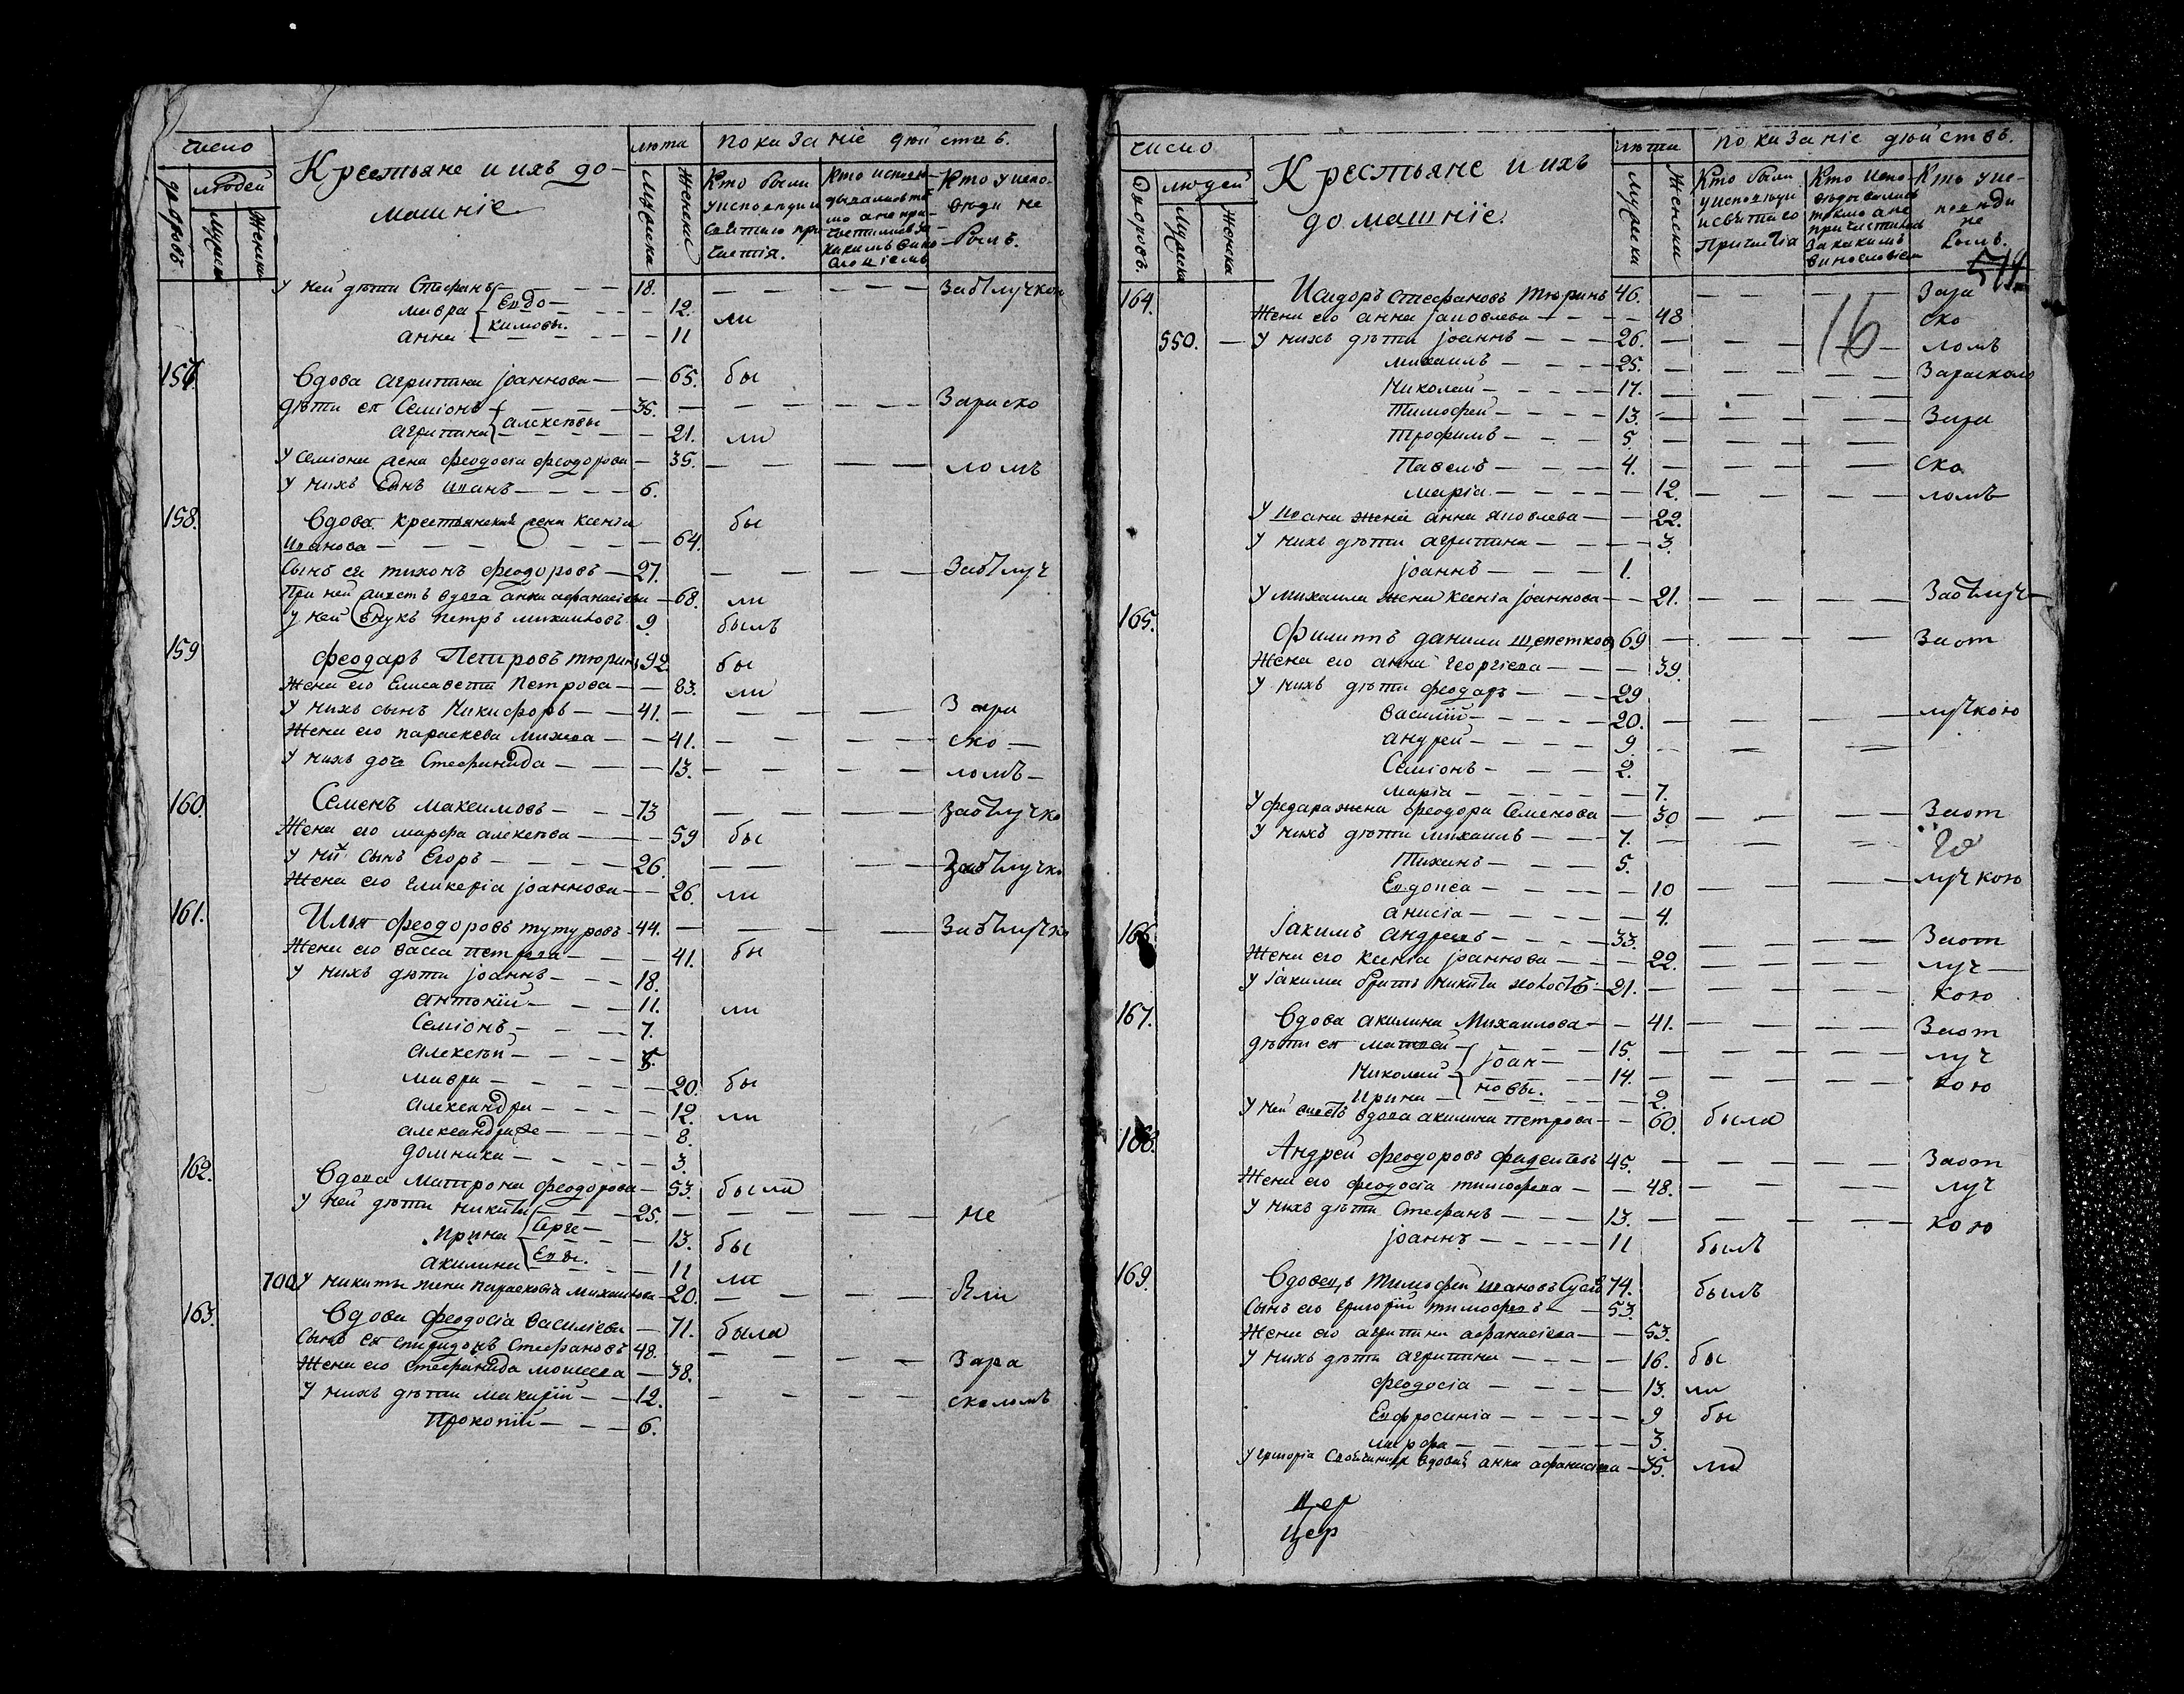 число
Крестьяне и ихъ до-
машніе
лѣта
показаніе дѣйствъ.
дворовъ
людей
мужска
женска
мужска
женски
Кто были
у исповѣди и
святаго при-
частія.
Кто исповѣ-
дывались то-
мо а не при-
частились за
какимъ вино-
словіемъ
Кто у испо-
вѣди не
былъ.
у ней дѣти Стефанъ 18. за отлучкою
мавра Евдо- 12. ли
анна кимовы. 11
157. Вдова агрипина іоаннова 65. бы
дѣти ея Семіонъ 35. Зараско
агрипина алексѣевы 21. ли
У семіона жена феодосіа феодорова 35. ломъ
У нихъ сынъ иванъ 6.
158. Вдова крестьянская жена ксеніа бы
иванова 64.
Сынъ ея тихонъ феодоровъ 27. За отлуч
При ней живетъ вдова анна афанасіева 68. ли
у ней внукъ петръ михаиловъ 9. былъ
159 феодаръ Петровъ тюринъ 92 бы
Жена его Елисавета Петрова 83. ли
У нихъ сынъ Никифоръ 41. Зара
Жена его параскева михеева 41. ско
У нихъ дочь Стефанида 13. ломъ
160. Семенъ максимовъ 73 За отлучко
Жена его марфа алексѣева 59 бы
У них сынъ Егоръ 26. За отлучко
Жена его гликеріа іоаннова 26. ли
161. Илья феодоровъ тутуровъ 44. За отлучко
Жена его васса петрова 41. бы
У нихъ дѣти іоаннъ 18.
антоній 11. ли
Семіонъ 7.
алексѣй 5.
мавра 20. бы
александра 12. ли
александра же 8.
домника 3.
162. Вдова Матрона феодорова 53. была
У ней дѣти никита 25. не
Ирина Серге 13. бы
акилина Евы. 11 ли
700 У никиты жена параскевіа михаилова 20. были
163. Вдова феодосіа василіева 71. была
Сынъ ея спиридонъ Стефановъ 48.
Жена его стефанида моисеева 38. Зара
У нихъ дѣти макарій 12. сколомъ
Прокопій 6.
число
Крестьяне и ихъ
домашніе.
лѣта
показаніе дѣйствъ.
Дворовъ.
людей
Мужска
Женска
Мужска
Женски
Кто были
у исповѣди
и святаго
Причастіа
Кто испо-
вѣдывались
токмо а не
причастились
за какимъ
винословіем
Кто у ис-
повѣди
не
былъ.
514
16
164. Исидоръ стефановъ тюринъ 46. Зара
Жена его анна іаковлева 48 ско
550. У нихъ дѣти іоаннъ 26. ломъ
михаилъ 25. Зарасколо
Николай 17.
Тимофей 13. Зара
Трофимъ 5
Павелъ 4. ско
маріа 12. ломъ
У ивана жена анна яковлева 22.
У нихъ дѣти агрипина 3.
іоаннъ 1.
У михаила жена ксеніа іоаннова 21. За отлуч
165. Филиппъ данили щепетковъ 69 Заот
Жена его анна георгіева 39.
У нихъ дѣти феодаръ 29
василій 20. лучкою
андрей 9.
Семіонъ 2.
маріа 7.
У федара жена феодора Семенова 30 Заот
У нихъ дѣти михаилъ 7.
Тихинъ 5.
Евдокса 10 лучкою
анисіа 4.
166 іакимъ андреевъ 33. Заот
Жена его ксеніа іоаннова 22. луч
У іакима братъ никита холостъ 21. кою
167. Вдова акилина Михаилова 41. Заот
Дѣти ея матвей 15. луч
Николай іоан 14. кою
Ирина новы. 2.
У ней живетъ вдова акилина петрова 60. была
168. Андрей феодоровъ 45. Заот
Жена его феодосіа тимофеева 48. луч
У нихъ дѣти Стефанъ 13. кою
іоаннъ 11 былъ
169. Вдовецъ Тимофей ивановъ 74. былъ
Сынъ его григорій тимофеевъ 53.
Жена его агрипина афанасіева 53.
У нихъ дѣти агрипина 16. бы
феодосіа 13. ли
Евфросиніа 9 бы
марфа 3.
У григоріа вдова анна афанасіева 35. ли
Цер
Цер